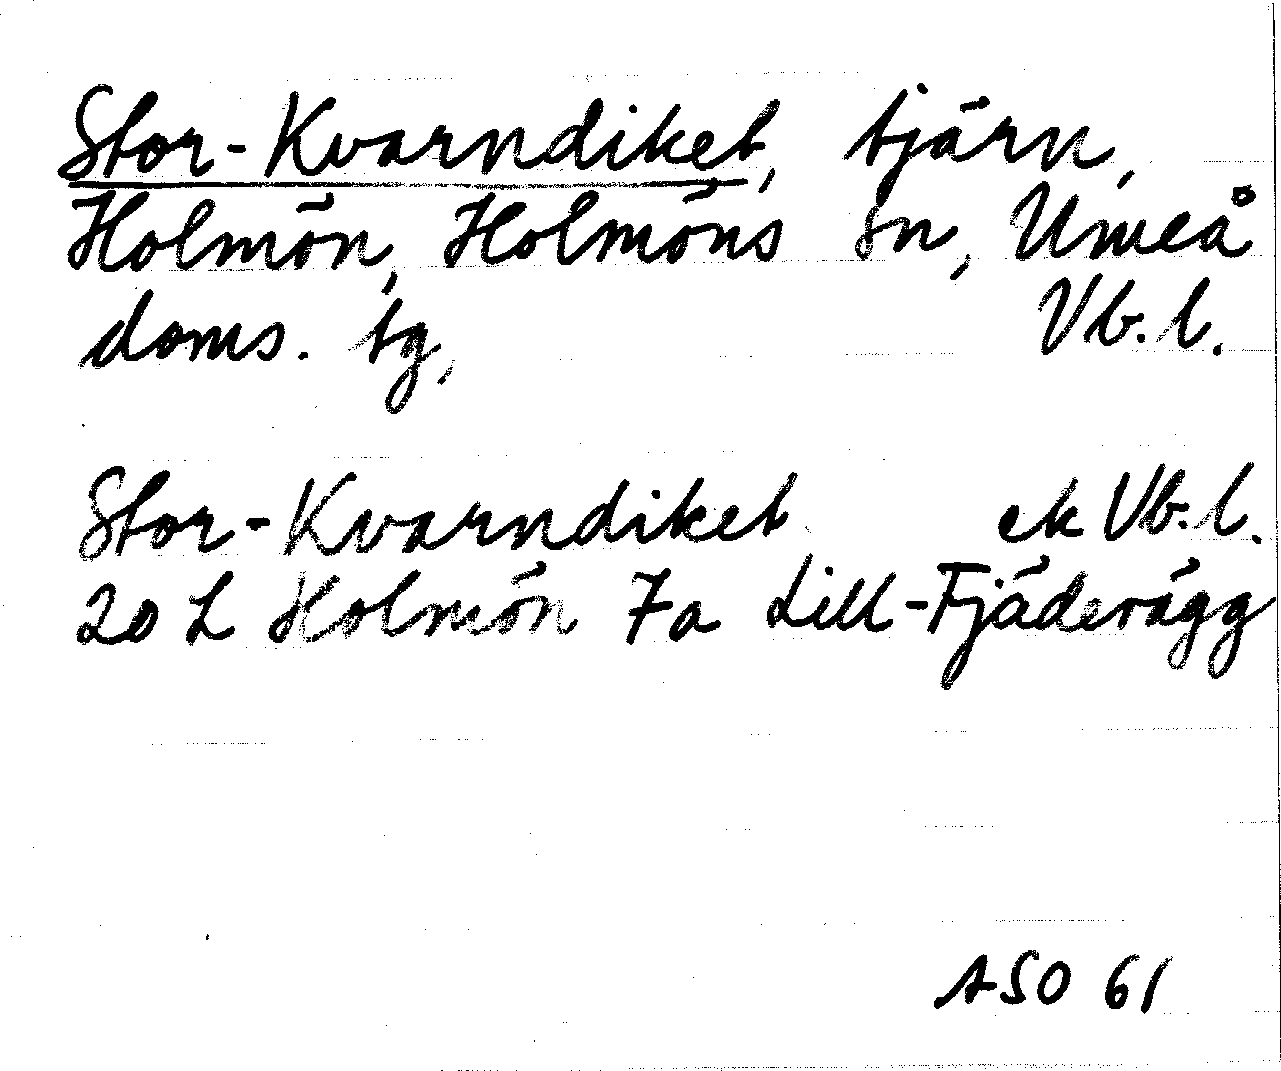 Stor-Kvarndiket, tjärn,
Holmön, Holmöns sn, Umeå
doms. tg, Vb. l.
Stor-Kvarndiket ek Vb. l.
20 L Holmön 7a Lill-Fjäderägg
ASO 61